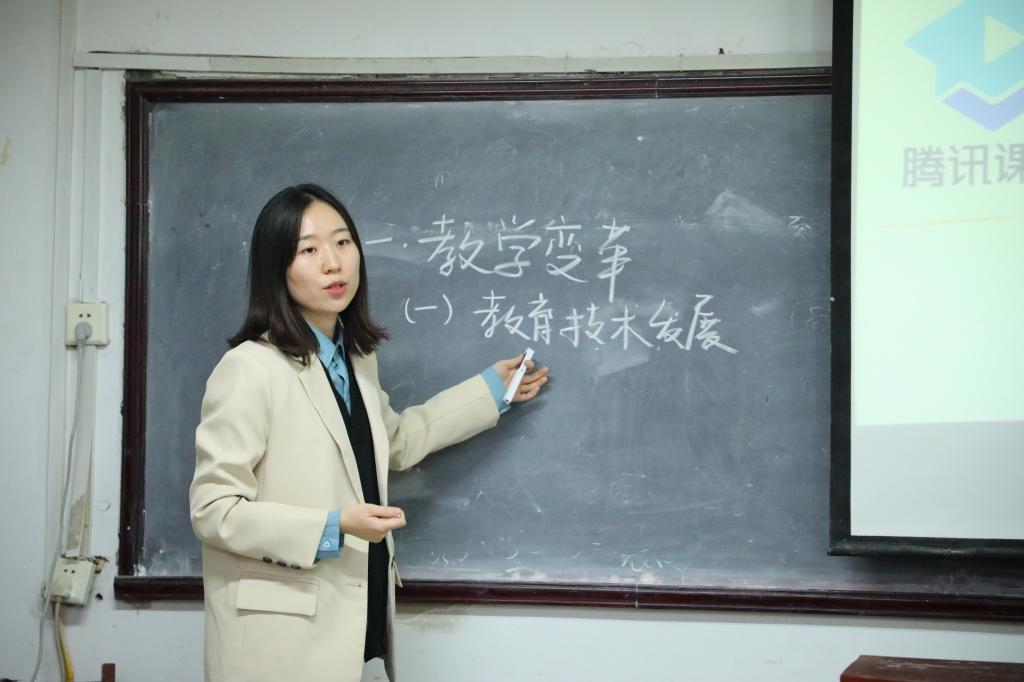 一.教学变革
(一)教育技术发展
腾讯课